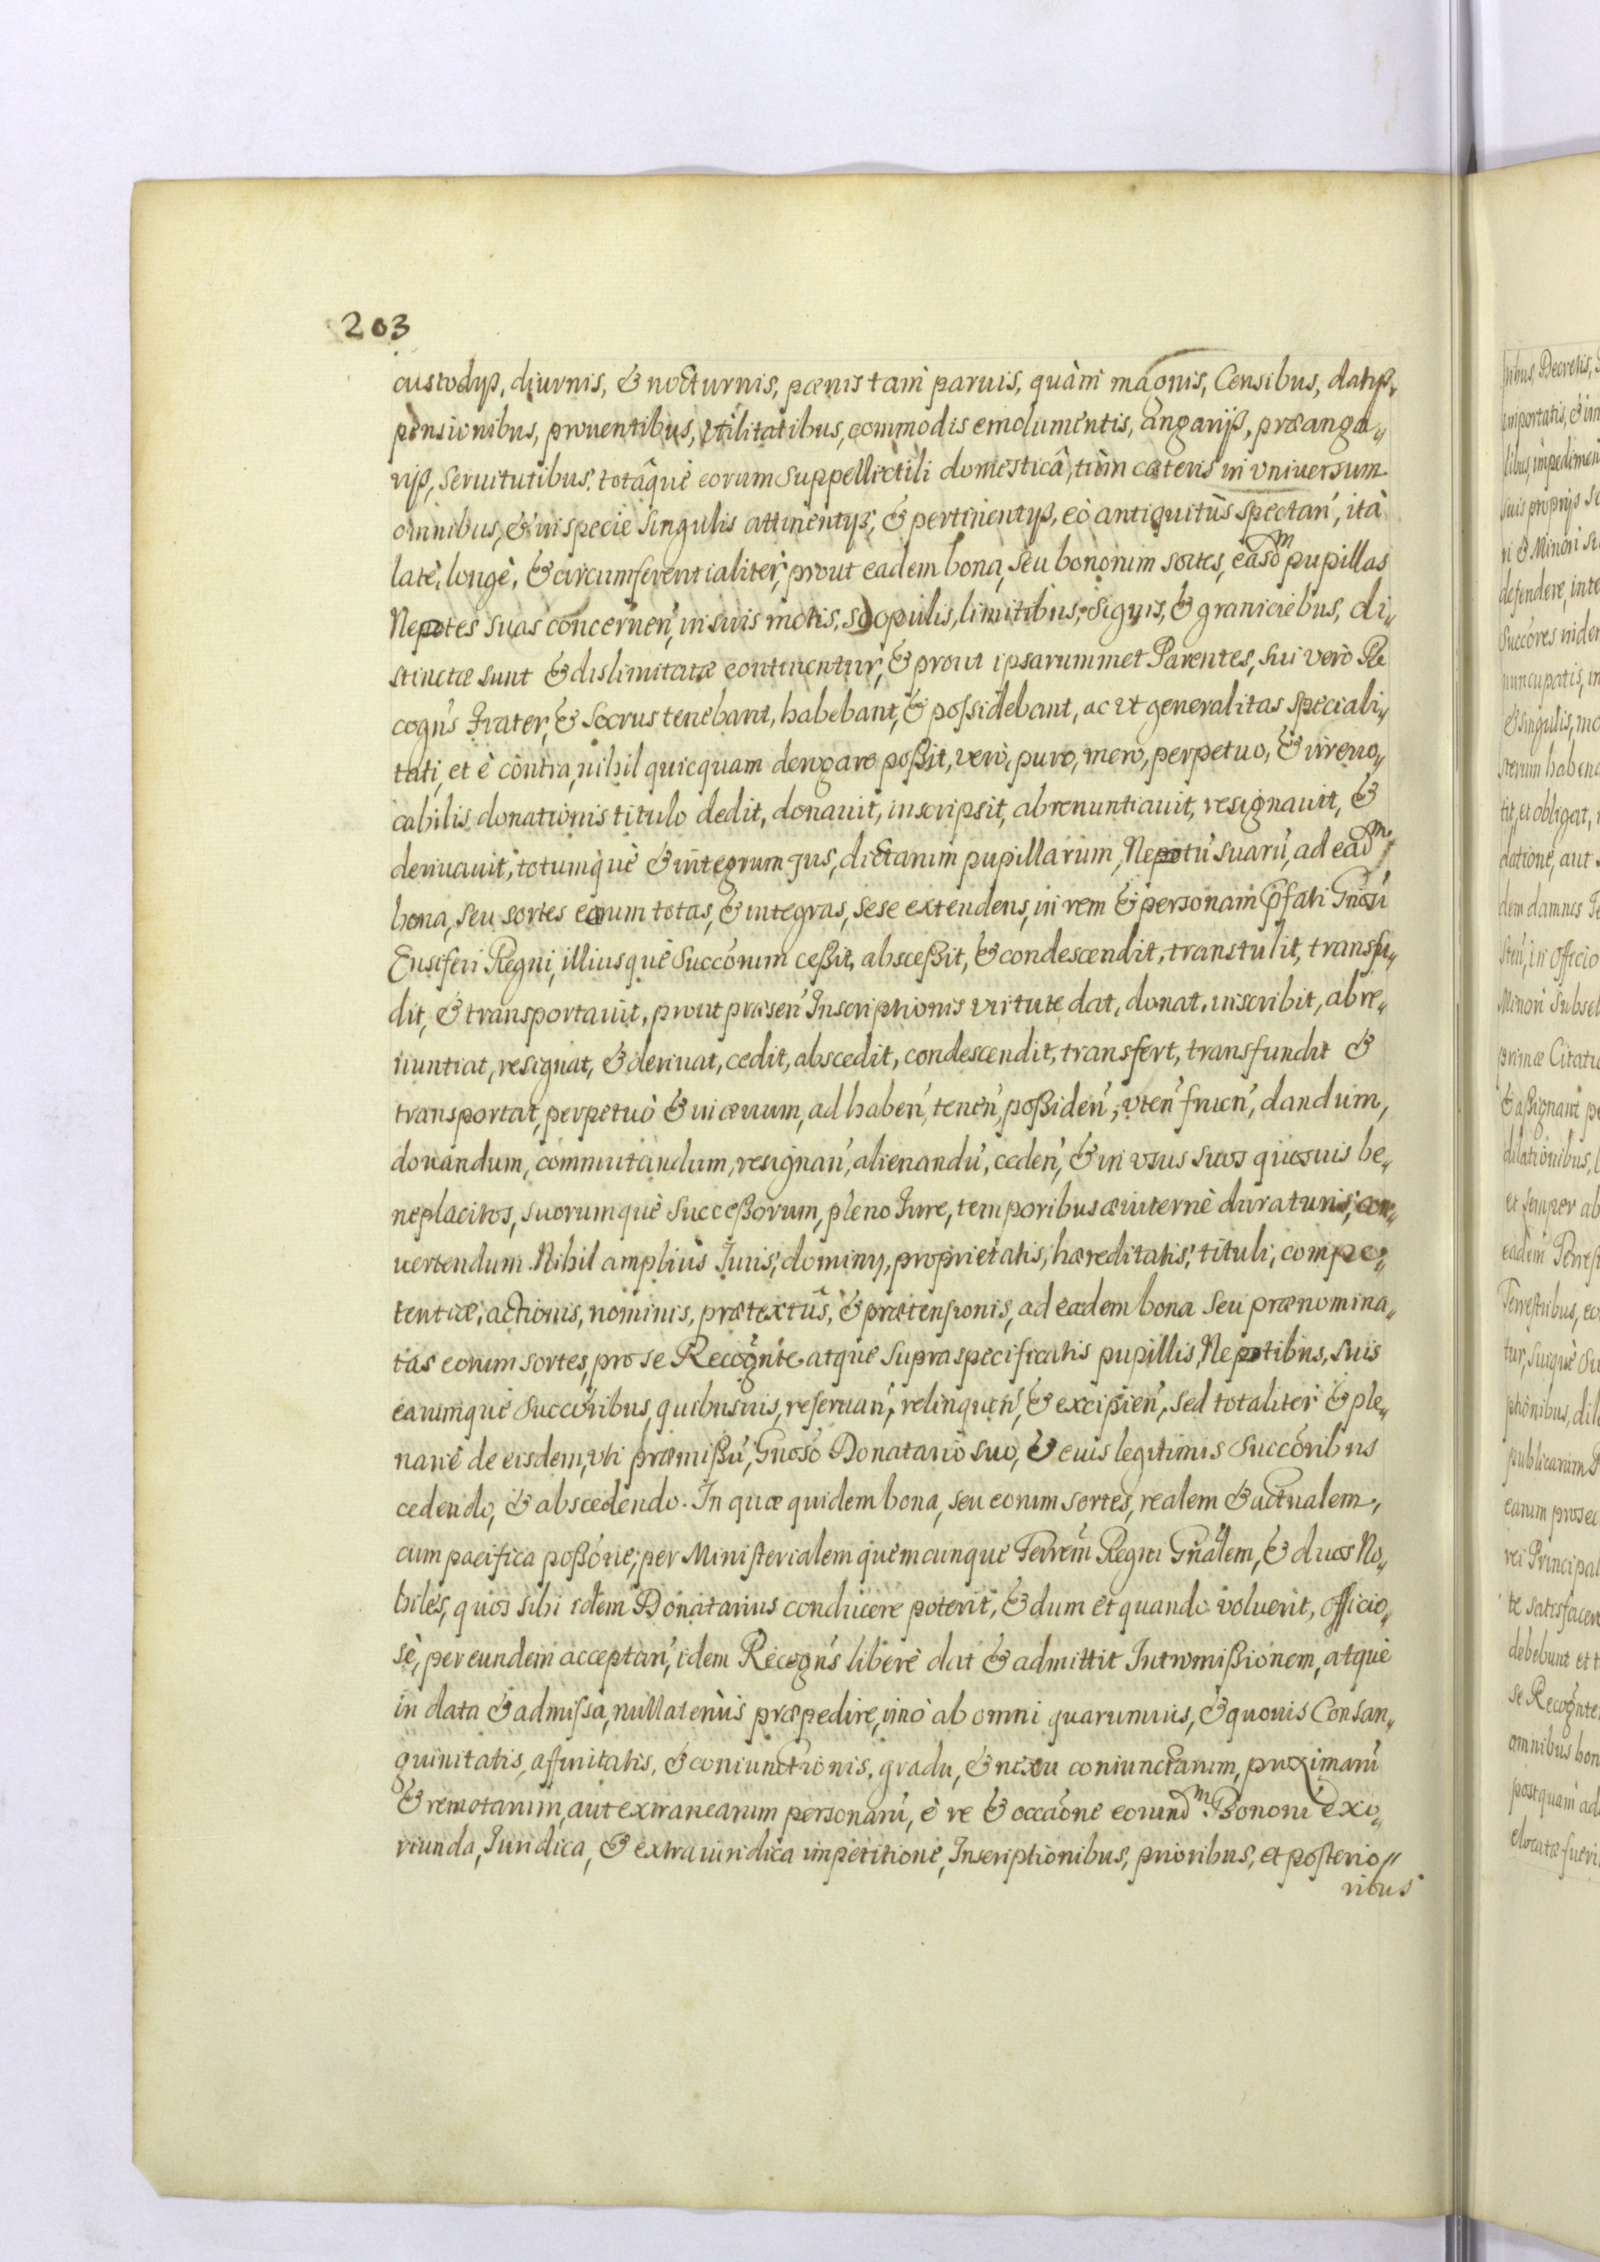 203
custodÿs, diurnis, & nocturnis, pœnis tam paruis, quàm magnis, Censibus, datÿs,
pensionibus, prouentibus, vtilitatibus, commodis emolumentis, angarijs, præanga„
rijs, seruitutibus, totâque eorum suppellectili domesticâ, tùm cæteris in vniversum
omnibus, & in specie singulis attinentÿs, & pertinentÿs, eò antiquitùs spectan', ità
latè, longè, & circumferentialiter, prout eadem bona, seu bonorum sortes, easdᵐ pupillas
Nepotes suas concernen', in suis metis, scopulis, limitibus, signis, & graniciebus, di„
stinctæ sunt & dislimitatæ continentur, & prout ipsarummet Parentes, sui verò Re
cogn̄s Frater, & Socrus tenebant, habebant, & possidebant, ac vt generalitas speciali„
tati, et è contra, nihil quicquam derogare poßit, verò, puro, mero, perpetuo, & irreuo„
cabilis donationis titulo dedit, donauit, inscripsit, abrenuntiauit, resignauit, &
deriuauit, totumquè & integrum Jus, dictarum pupillarum, Nepotū suarū, ad eadᵐ
bona, seu sortes eorum totas, & integras, sese extendens, in rem & personam p̄fati Gnosi
Ensiferi Regni, illiusquè Succorum ceßit, absceßit, & condescendit, transtulit, transfu„
dit, & transportauit, prout præsen' Inscriptionis virtute dat, donat, inscribit, abre„
nuntiat, resignat, & deriuat, cedit, abscedit, condescendit, transfert, transfundit &
transportat, perpetuò & in æuum, ad haben', tenen', poßiden', vten' fruen', dandum,
donandum, commutandum, resignan', alienandū, ceden', & in vsus suos quosuis be„
neplacitos, suorumquè Succeßorum, pleno Jure, temporibus æuiternè duraturis, con„
uertendum. Nihil ampliùs Juris, dominij, proprietatis, hæreditatis, tituli, compe„
tentiæ, actionis, nominis, prætextûs, & prætensionis, ad eadem bona seu prænomina„
tas eorum sortes, pro se Recogn̄te atque supraspecificatis pupillis, Nepotibus, suis
earumquè Succoribus, quibusuis, reseruan', relinquen', & excipien', sed totaliter & ple„
nariè de eisdem, vti præmißū, Gnoso Donatario suo, & eius legitimis Succoribus
cedendo, & abscedendo. In quæ quidem bona, seu eorum sortes, realem & actualem,
cum pacifica poßone, per Ministerialem quemcunque Terrem̄ Regni Gn̄alem, & duos No„
biles, quos sibi idem Donatarius conducere poterit, & dum et quando voluerit, officio„
sè, per eundem acceptan', idem Recogn̄s liberè dat & admittit Intromißionem, atquè
in data & admissa, nullatenùs præpedire, imò ab omni quarumuis, & quouis Consan„
guinitatis, affinitatis, & coniunctionis, gradu, & nexu coniunctarum, proximarū
& remotarum, aut extranearum personarū, è re & occaone eorundᵐ Bonorū exo„
riunda, Juridica, & extraiuridica impetitione, Inscriptionibus, prioribus, et posterio„
ribus